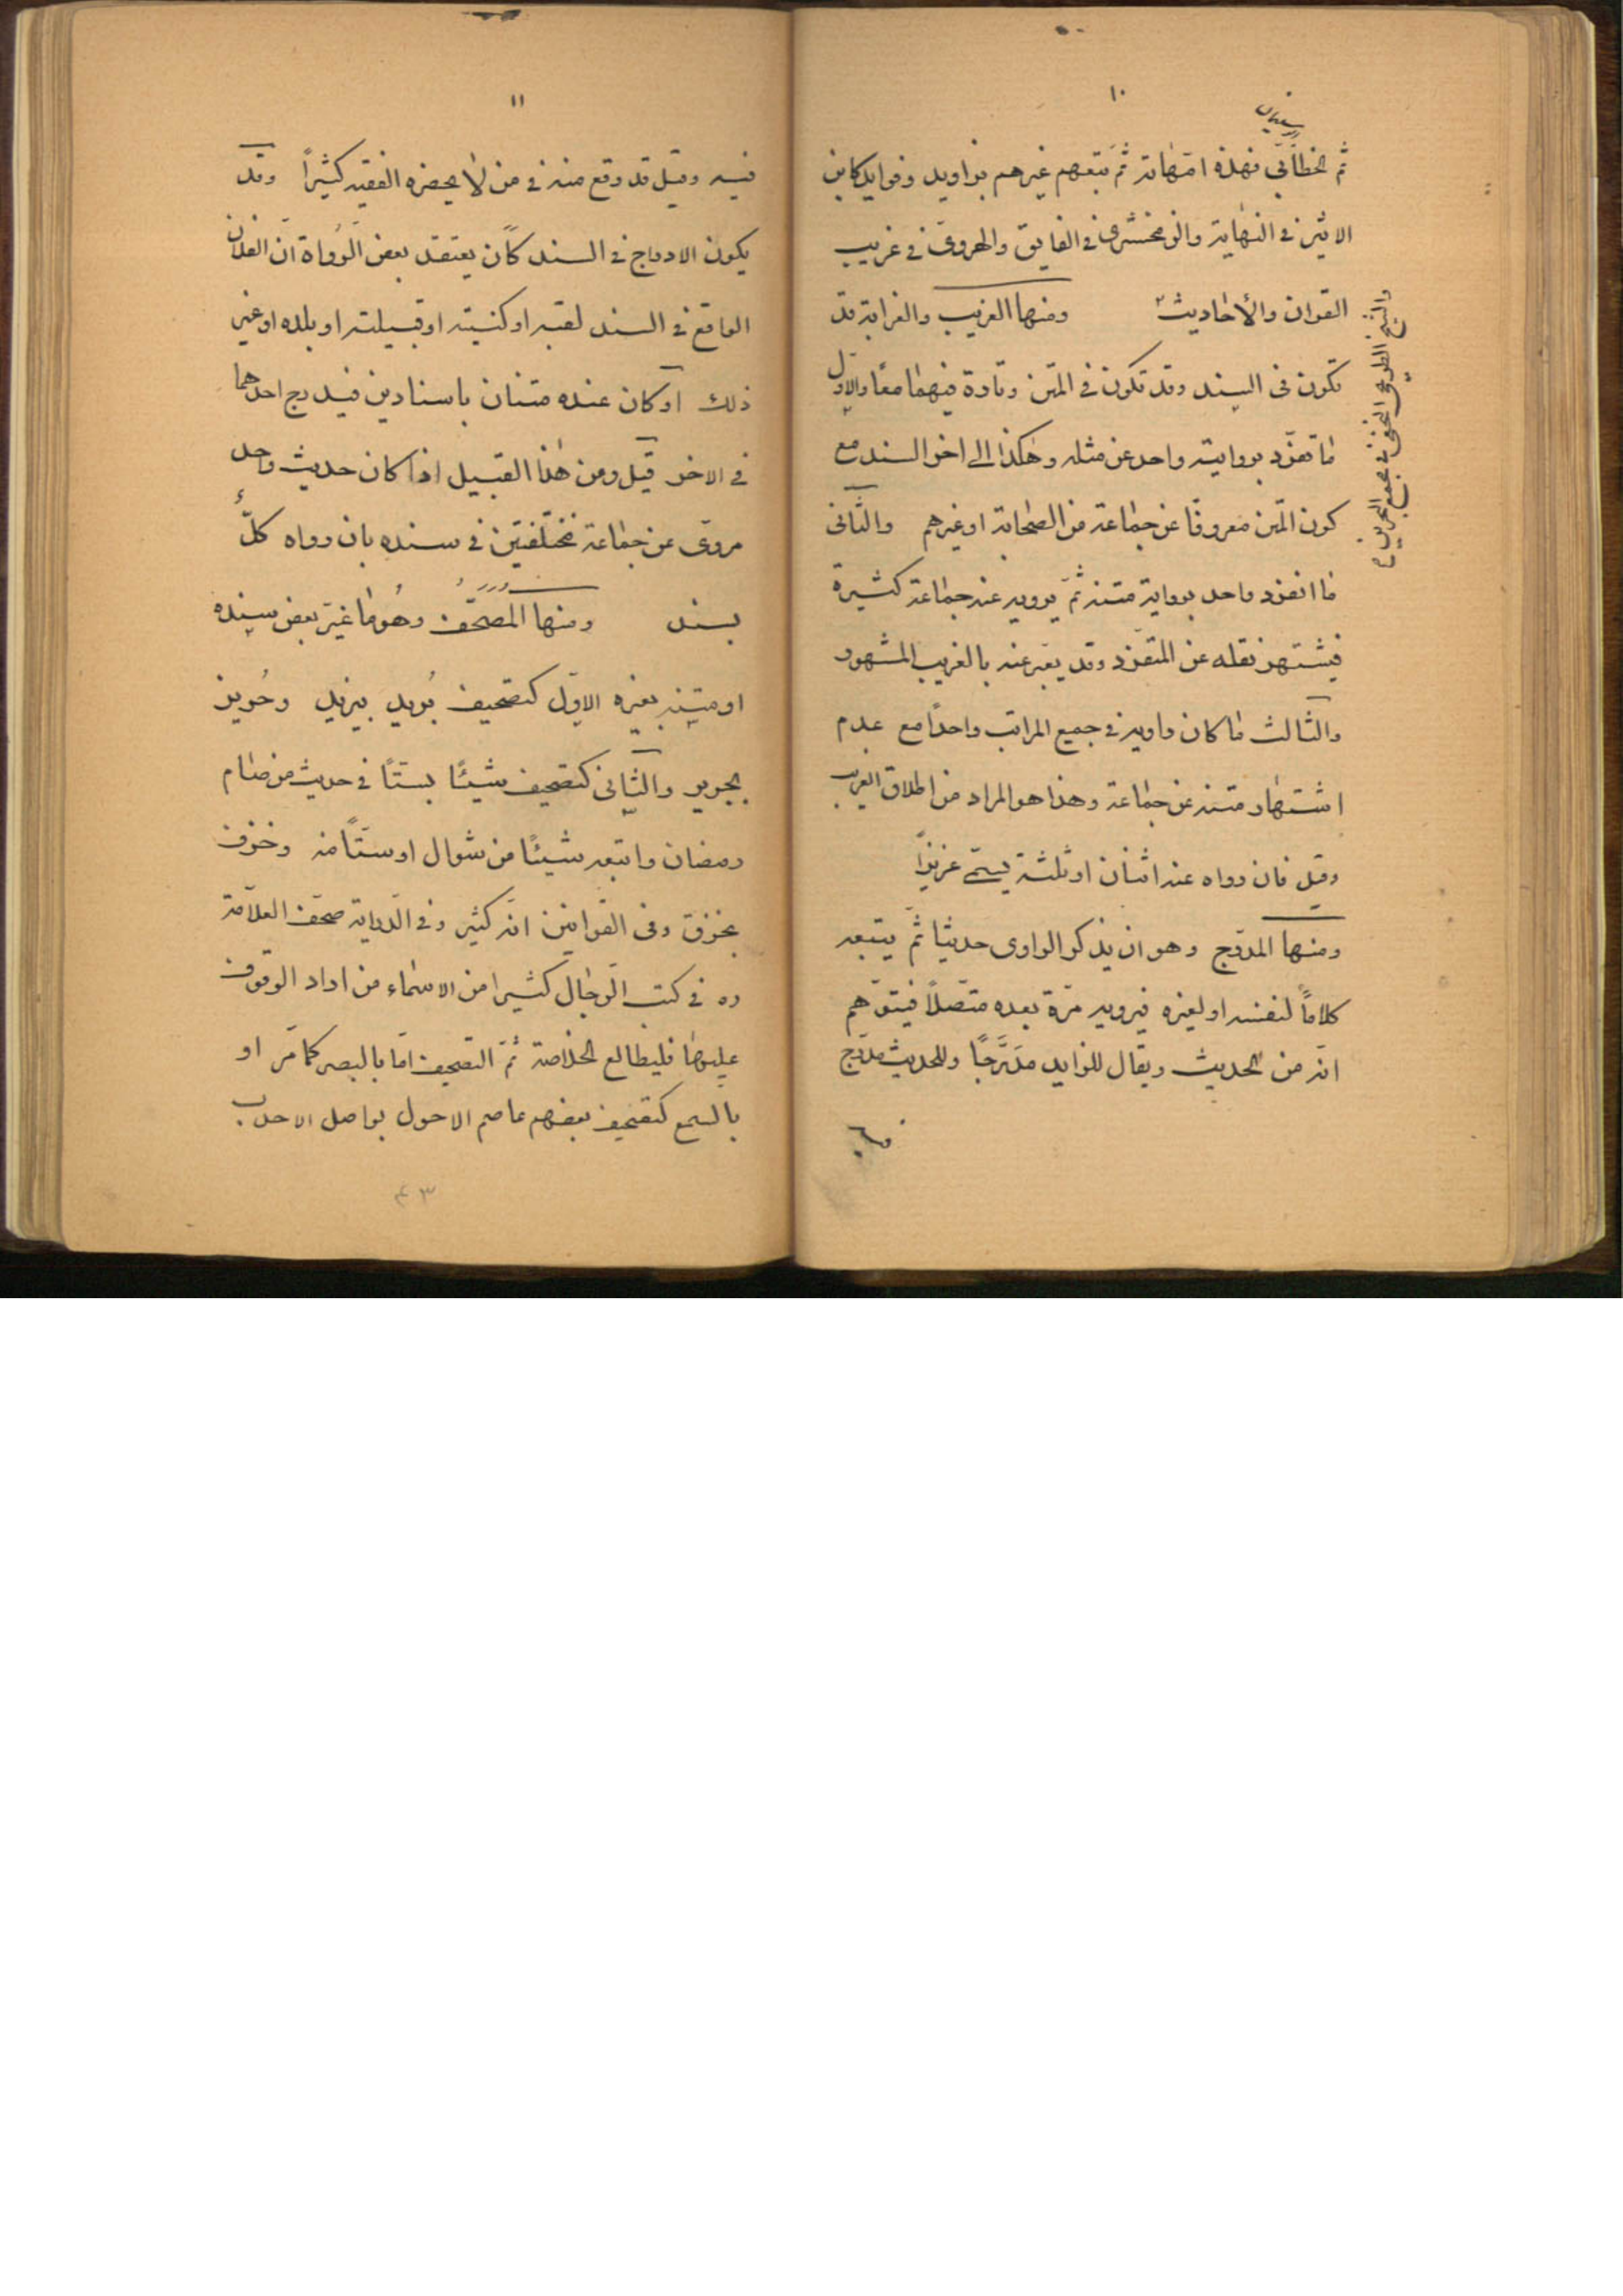 ١٠
ثم الخطابي فهذه امهاته ثم تبعهم غيرهم بزوايد وفوايد كابن
الاثير في النهاية والزمخشري في الفايق والهروي في غريب
القرآن والأحاديث ومنها الغريب والغرابة قد
تكون في السند وقد تكون في المتن وتارة فيهما معًا والاول
ما تفرّد بروايته واحد عن مثله وهكذا الى اخر السند مع
كون المتن معروفا عن جماعة من الصحابة او غيرهم والثّاني
ما انفرد واحد برواية متنه ثمّ يرويه عنه جماعة كثيرة
فيشتهر نقله عن المتفرّد وقد يعبّر عنه بالغريب المشهور
والثّالث ما كان راويه في جميع المراتب واحدًا مع عدم
اشتهار متنه عن جماعة وهذا هو المراد من اطلاق الغريب
وقيل فان رواه عنه اثنان او ثلثة يسمّى عزيزًا
ومنها المدرّج وهو ان يذكر الراوى حديثا ثمّ يتبعه
كلامًا لنفسه او لغيره فيرويه مرّة بعده متّصلًا فيتوهّم
انّه من الحديث ويقال للزايد مدرَّجًا وللحديث مدرّج
والشيخ الطريحي النجفي في مجمع البحرين
١١
فيه وقيل قد وقع منه في من لا يحضره الفقيه كثيرًا وقد
يكون الادراج في السند كأن يعتقد بعض الرّواة انّ الفلان
الواقع في السند لقبه او كنيته او قبيلته او بلده او غير
ذلك او كان عنده متنان باسنادين فيدرج احدهما
في الاخر قيل ومن هذا القبيل اذا كان حديث واحد
مروىّ عن جماعة مختلفين في سنده بان رواه كلٌّ
بسند ومنها المُصَحَّف وهُو ما غيّر بعض سنده
او متنه بغيره الاوّل كتصحيف بُريد بيزيد وحُريز
بجرير والثّاني كتصحيف شيئًا بستّا في حديث من صام
رمضان واتبعه شيئًا من شوال او ستًا منه وخزف
بخرق وفي القوانين انّه كثير وفي الدّراية صحّف العلّامة
ره في كتب الرّجال كثيرا من الاسماء من اراد الوقوف
عليها فليطالع الخلاصة ثمّ التصحيف امّا بالبصر كما مرّ او
بالسمع كتصحيف بعضهم عاصم الاحول بواصل الاحدب